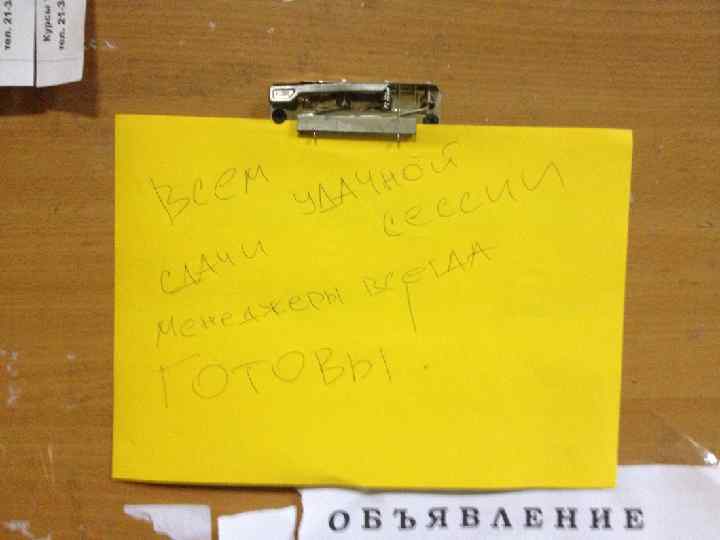 тел. 21-3
Курсы
тел. 21-3
ВСЕМ УДАЧНОЙ
СДАЧИ СЕССИИ
менеджеры всегда
ГОТОВЫ!
ОБЪЯВЛЕНИЕ